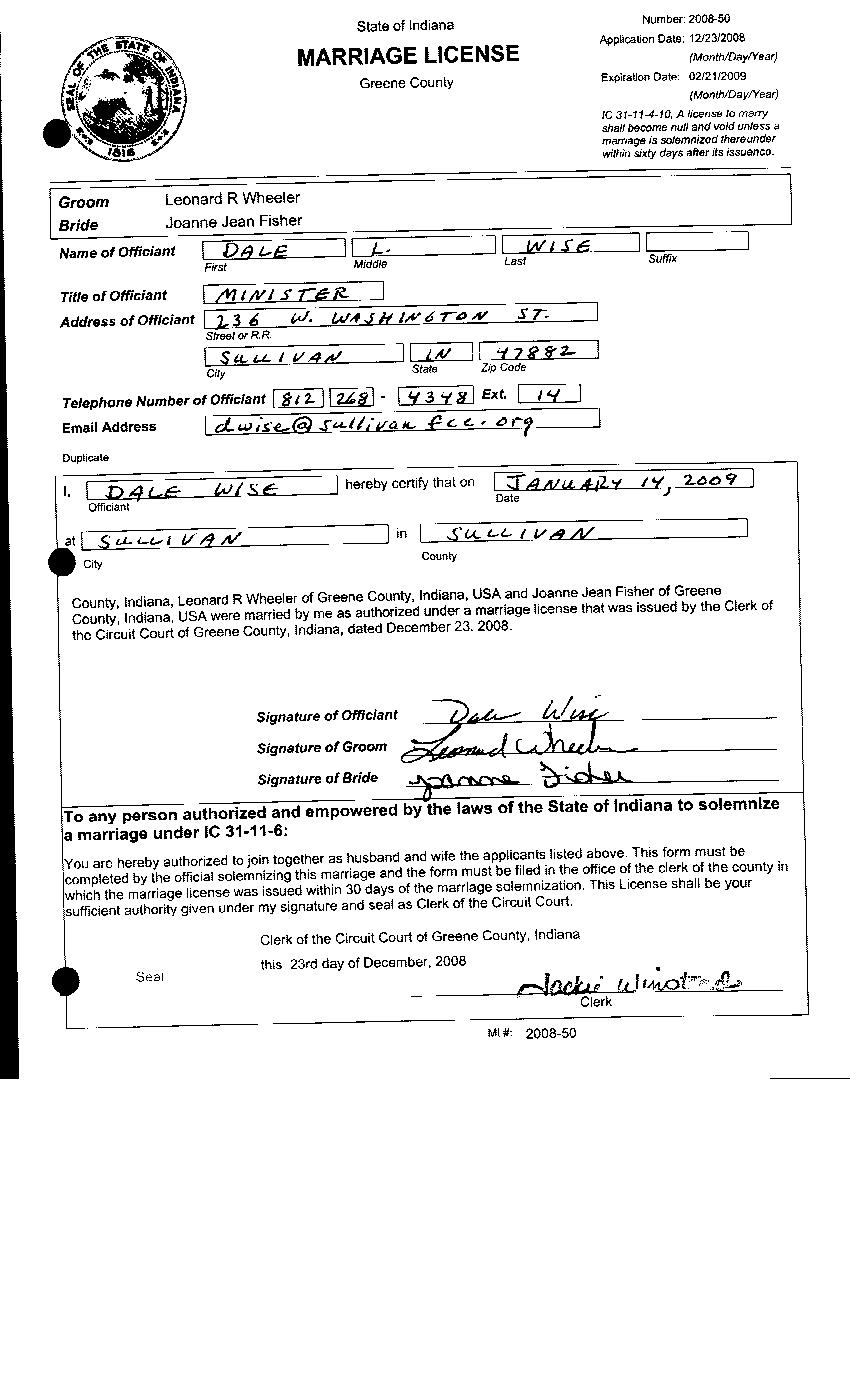 State of Indiana
MARRIAGE LICENSE
Greene County
Number: 2008-50
Application Date: 12/23/2008
(Month/Day/Year)
Expiration Date: 02/21/2009
(Month/Day/Year)
IC 31-11-4-10, A license to marry
shall become null and void unless a
marriage is solemnized thereunder
within sixty days after its issuence.
SEAL OF THE STATE OF INDIANA
1816
Groom Leonard R Wheeler
Bride Joanne Jean Fisher
Name of Officiant DALE L. WISE
First Middle Last Suffix
Title of Officiant MINISTER
Address of Officiant 236 W. WASHINGTON ST.
Street or R.R.
SULLIVAN IN 47882
City State Zip Code
Telephone Number of Officiant 812 268 - 4348 Ext. 14
Email Address dwise@sullivanfcc.org
Duplicate
I, DALE WISE hereby certify that on JANUARY 14, 2009
Officiant Date
at SULLIVAN in SULLIVAN
City County
County, Indiana, Leonard R Wheeler of Greene County, Indiana, USA and Joanne Jean Fisher of Greene
County, Indiana, USA were married by me as authorized under a marriage license that was issued by the Clerk of
the Circuit Court of Greene County, Indiana, dated December 23, 2008.
Signature of Officiant Dale Wise
Signature of Groom Leonard Wheeler
Signature of Bride Joanne Fisher
To any person authorized and empowered by the laws of the State of Indiana to solemnize
a marriage under IC 31-11-6:
You are hereby authorized to join together as husband and wife the applicants listed above. This form must be
completed by the official solemnizing this marriage and the form must be filed in the office of the clerk of the county in
which the marriage license was issued within 30 days of the marriage solemnization. This License shall be your
sufficient authority given under my signature and seal as Clerk of the Circuit Court.
Clerk of the Circuit Court of Greene County, Indiana
this 23rd day of December, 2008
Seal
Jackie
Clerk
ML#: 2008-50